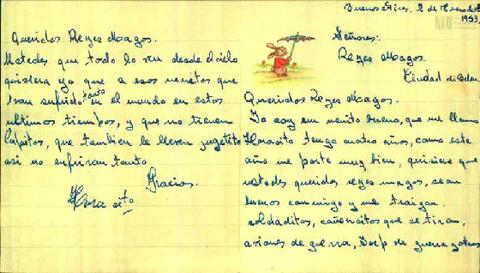 Buenos Aires, 2 de Enero de
1953.
Señores:
Reyes Magos.
Ciudad de Belen.
Queridos Reyes Magos.
Yo soy un nenito bueno, que me llamo
Horacito tengo cuatro años, como este
año me porte muy bien, quisiera que
ustedes queridos reyes magos, sean
buenos conmigo y me traigan
soldaditos, cañoncitos que se tiran,
aviones de guerra, Jeep de guerra y otros
Queridos Reyes Magos.
Ustedes que todo lo ven desde el cielo
quisiera ya que a esos nenitos que
han sufrido tanto en el mundo en estos
ultimos tiempos, y que no tienen
papitos, que tambien le lleven juguetito
asi no sufriran tanto
Gracias.
Horacito